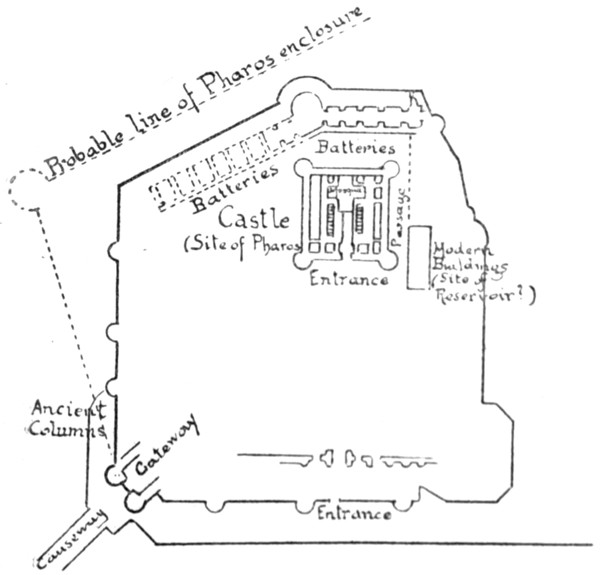 Probable line of Pharos enclosure
Batteries
Batteries
Castle
(Site of Pharos
Entrance
Passage
Modern
Buildings
(Site of
Reservoir?)
Ancient
Columns
Gateway
Entrance
Causeway